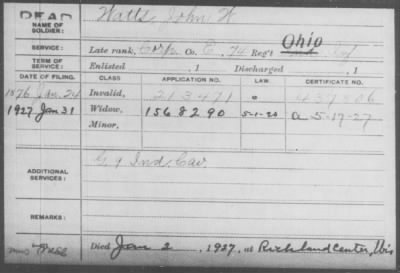 DEAD
NAME OF SOLDIER: Watts, John W
SERVICE: Late rank, Corp Co. C, 74 Reg't Ohio Inf
TERM OF SERVICE: Enlisted , 1 Discharged , 1
DATE OF FILING. CLASS. APPLICATION NO. LAW. CERTIFICATE NO.
1876 Jan. 24 Invalid, 213471
1927 Jan 31 Widow, 1568290 5-1-20 a 5-17-27
Minor,
ADDITIONAL SERVICES: G 9 Ind. Cav.
REMARKS:
Died Jan 2, 1927, at Richland Center, Wis